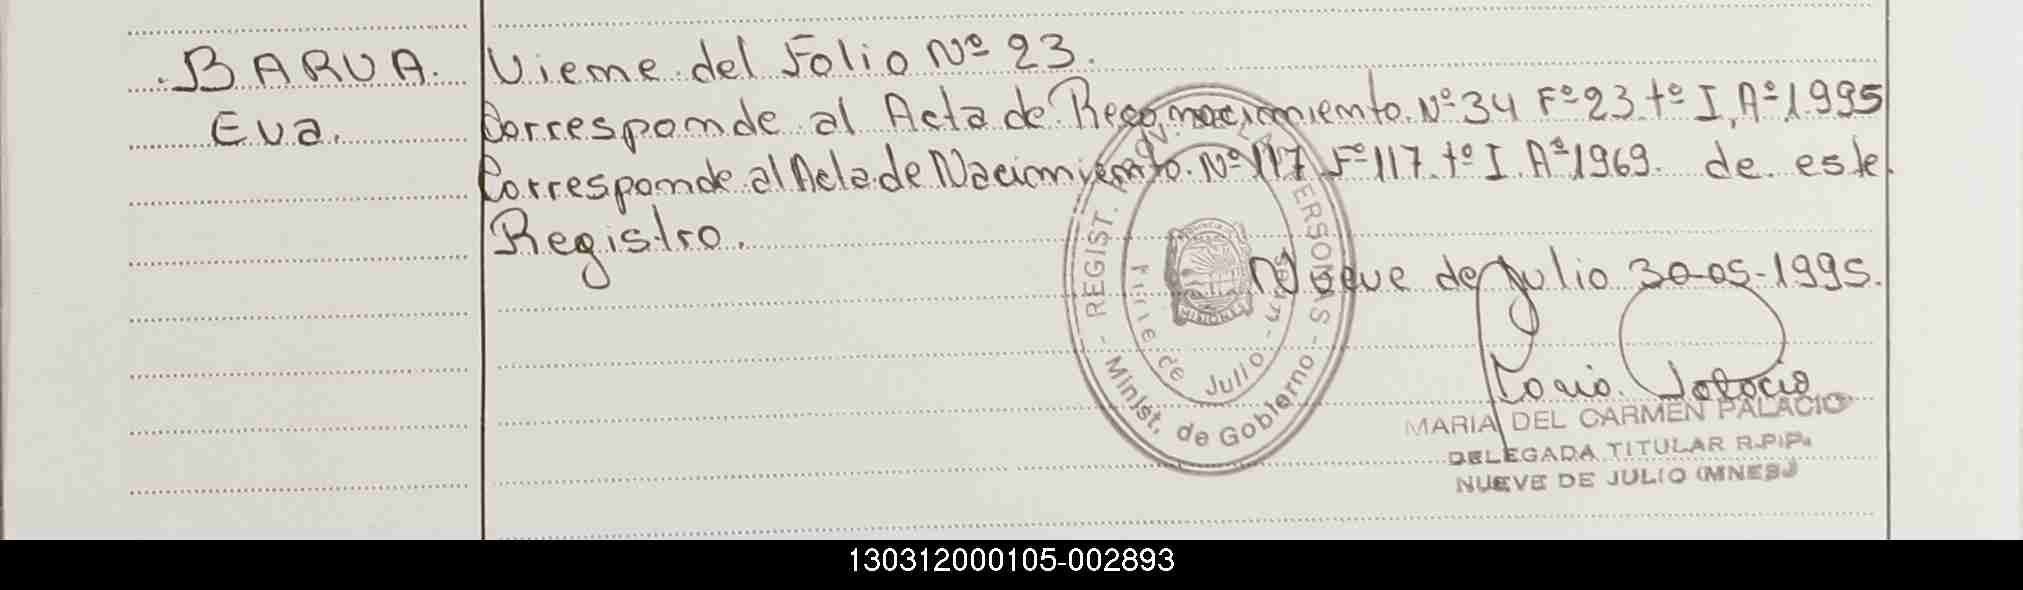 BARUA. Viene del Folio Nº 23.
Eva. Corresponde al Acta de Reconocimiento. Nº 34 Fº 23. tº I, Aº 1.995
Corresponde al Acta de Nacimiento. Nº 117 Fº 117. tº I. Aº 1969. de este
Registro.
Nueve de Julio 30-05-1995.
REGIST. PROV. LAS PERSONAS
- Minist. de Gobierno -
Nueve de Julio
MISIONES
MARIA DEL CARMEN PALACIO
DELEGADA TITULAR R.P.P.
NUEVE DE JULIO (MNES.)
130312000105-002893